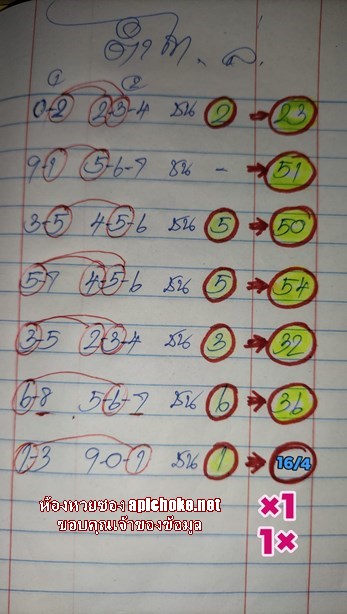 ต๋าพ. ล.
① ②
0-2 2-3-4 ชน 2 → 23
9-1 5-6-7 ชน - → 51
3-5 4-5-6 ชน 5 → 50
5-7 4-5-6 ชน 5 → 54
3-5 2-3-4 ชน 3 → 32
6-8 5-6-7 ชน 6 → 36
1-3 9-0-1 ชน 1 → 16/4
ห้องหวยของ apichoke.net
ขอบคุณเจ้าของข้อมูล
×1
1×